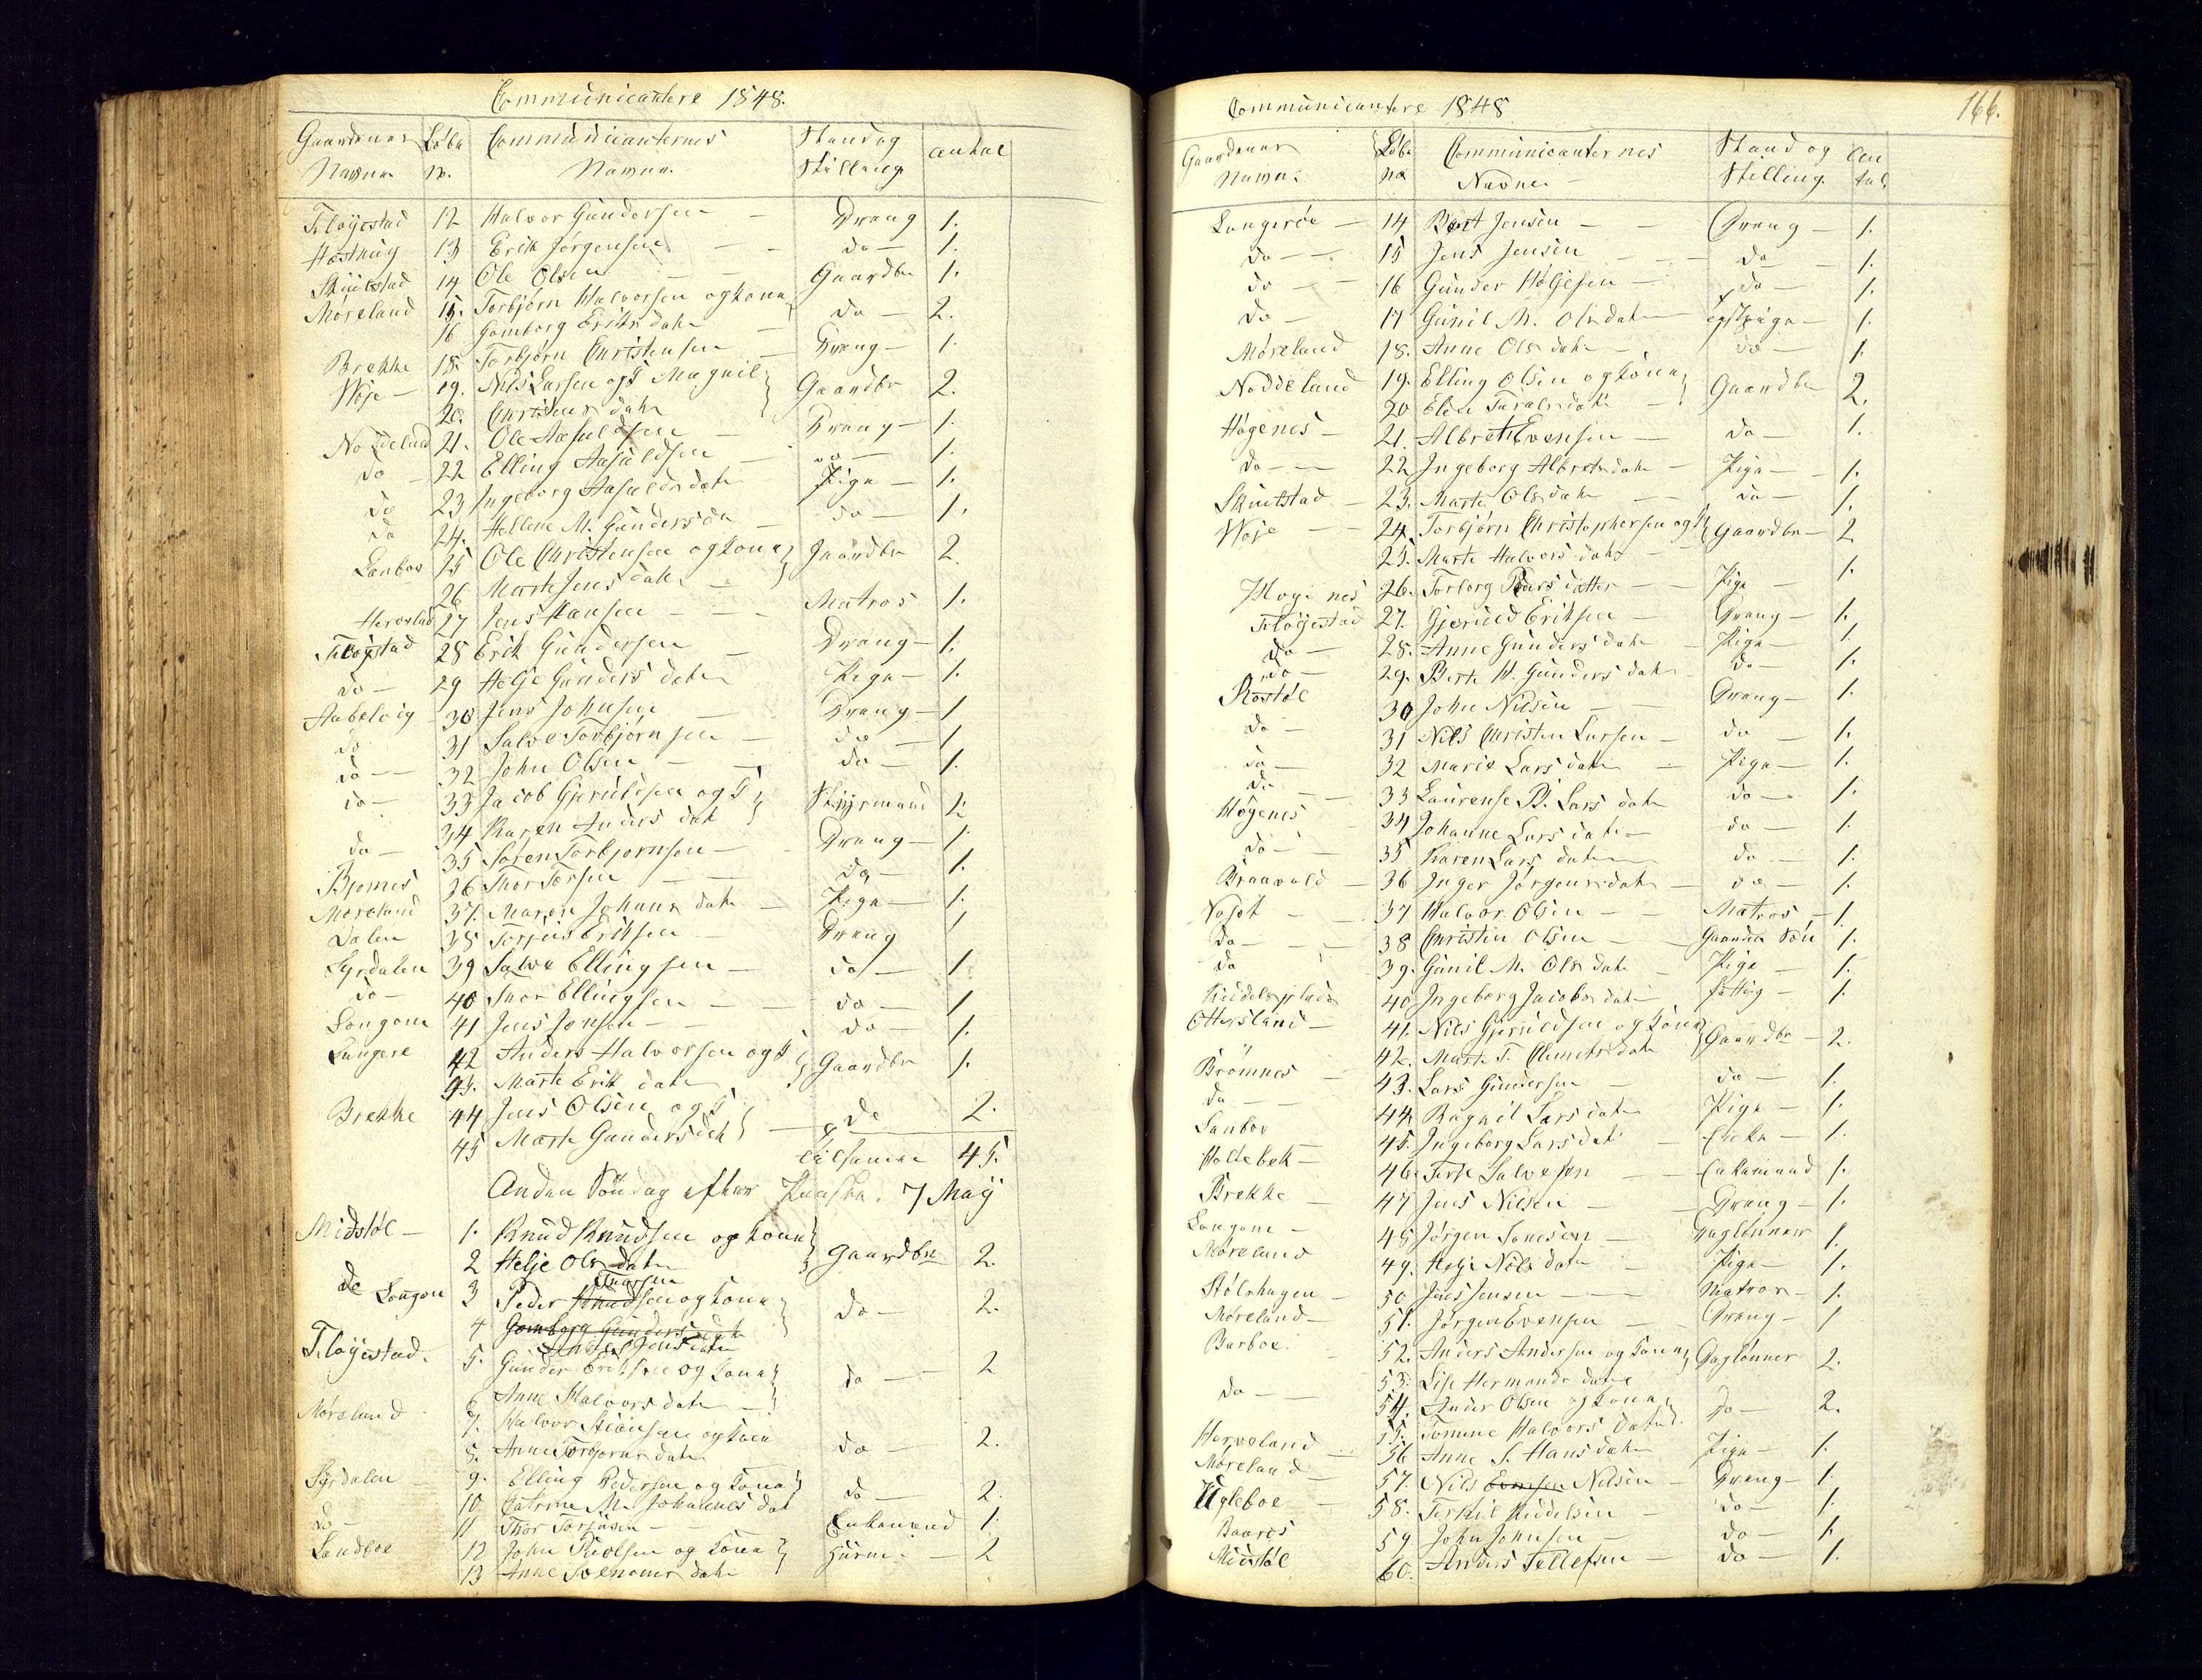 Communicantere 1848.
Gaardenes Løbe Communicanternes Stand og antal
Navne. n. Navne. Stilling
Fløystad 12 Halvor Gundersen — Dreng 1.
13 Erik Jørgensen — — do — 1.
14 Ole Olsen — — Gaardbr 1.
Møreland 15. Torbjørn Halvorsen og Kone do — 2.
16 Gomborg Eriks datr —
Brekke 18. Torbjørn Christensen — Dreng — 1.
Woje — 19. Nils Larsen og K Magnil Gaardbr 2.
20. Christens datr
21. Ole Aasuldsen — Dreng — 1.
do — 22 Elling Aasuldsen — do — 1.
do 23 Ingeborg Aasulds datr Pige — 1.
do 24. Hellene M. Gunders da — do — 1.
Lanboe 25 Ole Christensen og Kone Gaardbr 2.
26 Marte Jens datr —
27 Jens Hansen — — — Matros 1.
Fløistad 28 Erik Gundersen — Dreng — 1.
do — 29 Helje Gunders datr Pige — 1.
Aabelvig 30 Jens Johnsen — Dreng — 1
do 31 Salve Torbjørnsen — do — 1
do — 32 John Olsen — — do — 1.
do — 33 Jacob Gjeruldsen og K Styrmand 2.
34 Karen Anders dat
do — 35 Søren Torbjørnsen — Dreng — 1.
Bjornes 36 Thor Torsen — — do — 1.
Moreland 37. Maren Johans datr — Pige — 1.
Dalen 38 Torjus Eriksen — Dreng 1
Syrdalen 39 Salve Ellingsen — do — 1.
do — 40 Thor Ellingsen — — do — 1
Songone 41 Jens Jensen — — do — 1.
Langere 42 Anders Halvorsen og K Gaardbr 1.
43. Marte Erik datr
Brekke 44 Jens Olsen og K — do 2.
45 Marte Gunders dat
tilsamen 45.
Anden Söndag efter Paaske. 7 May
Midstøl — 1. Knud Knudsen og Kone Gaardbr 2.
2 Helje Ols datr
de Songon 3 Peder Knudsen og Kone do — 2.
4 Gomborg Gunders datr
Jens datr
Fløyestad. 5. Gunder Eriksen og Kone do — 2
6 Anne Halvors datr —
Møreland 7. Halvor og Kone do — 2.
8. Anne Torbjørns datr
Syrdalen — 9. Elling Pedersen og Kone do — 2.
10 Catrine M. Johannes dat
do — 11 Thor Torjusen — — Enkemand 1.
Landboe 12 John og Kone — 2
13 Anne datr
Communicantere 1848 166.
Gaardenes Løbe Communicanternes Stand og An
Navne no Navne — Stilling. tal
Langerøe — 14 Bent Jensen — — Dreng — 1.
do — — 15 Jens Jensen — — — do — 1.
do — — 16 Gunder Høljesen — do — 1.
do — 17 Gunil M. Ols datr 1.
Møreland 18. Anne Ols datr — do — 1.
Noddeland 19. Elling Olsen og Kone Gaardbr 2.
20 Elen Tarals datr —
Høgenes — 21. Albret Evensen — do — 1.
do — — 22 Ingeborg Albrets datr — Pige — 1.
23. Marte Ols datr — — do — 1.
Woje — — 24. Torbjørn Christophersen og K Gaardbr — 2
25. Marte Halvors datr
Høgenes 26. Torborg Lars datter — — Pige — 1.
Fløyestad 27. Gjeruld Eriksen — Dreng — 1.
do — 28. Anne Gunders datr — Pige — 1.
do — 29. Berte H. Gunders datr — do — 1.
Rostøl 30 John Nilsen — — Dreng — 1.
do — 31 Nils Christen Larsen — do — 1.
do — 32 Marie Lars datr — Pige — 1.
do — 33 Laurense B. Lars datr do — 1.
Høgenes 34 Johanne Lars datr — do — 1.
do — — 35 Karen Lars datr — do — 1.
Braavold — 36 Inger Jørgens datr — do — 1.
37 Halvor Olsen — — Matros — 1.
do — — — 38 Christen Olsen — Gaardm Søn 1.
do 39. Gunil M. Ols datr — Pige — 1.
40 Ingeborg Jacobs datr fattig — 1.
Ottersland — 41. Nils Gjeruldsen og Kone Gaardbr — 2.
42. Marte T. Clemets dat
Brømnes — 43. Lars Gundersen — do — 1.
do — — 44. Ragnil Lars datr Pige — 1.
Lanboe 45. Ingeborg Lars dat — Enke — 1.
Holtebek — 46. Terje Salvesen — — Enkemand 1.
Brekke — 47 Jens Nilsen — — Dreng — 1.
Songone — 48 Jørgen Tønesen — Daglønner 1.
Møreland 49. Helje Nils datr — Pige — 1.
Stølshagen — 50 Jens Jensen — — Matros — 1.
Møreland — 51. Jørgen Evensen — Dreng — 1
Barboe. 52. Anders Andersen og Kone Daglønner 2.
53. Lise Hermands datr
do — — 54. Ander Olsen og Kone do — 2.
55. Tomine Halvors datr.
Herveland 56 Anne S. Hans datr Pige — 1.
Møreland — 57. Nils Evensen Nilsen — Dreng — 1.
Ugleboe — 58. Terkil Kiddelsen — do — 1.
59 John Johnsen — do — 1.
Midstøl 60. Anders Tellefsen — do — 1.